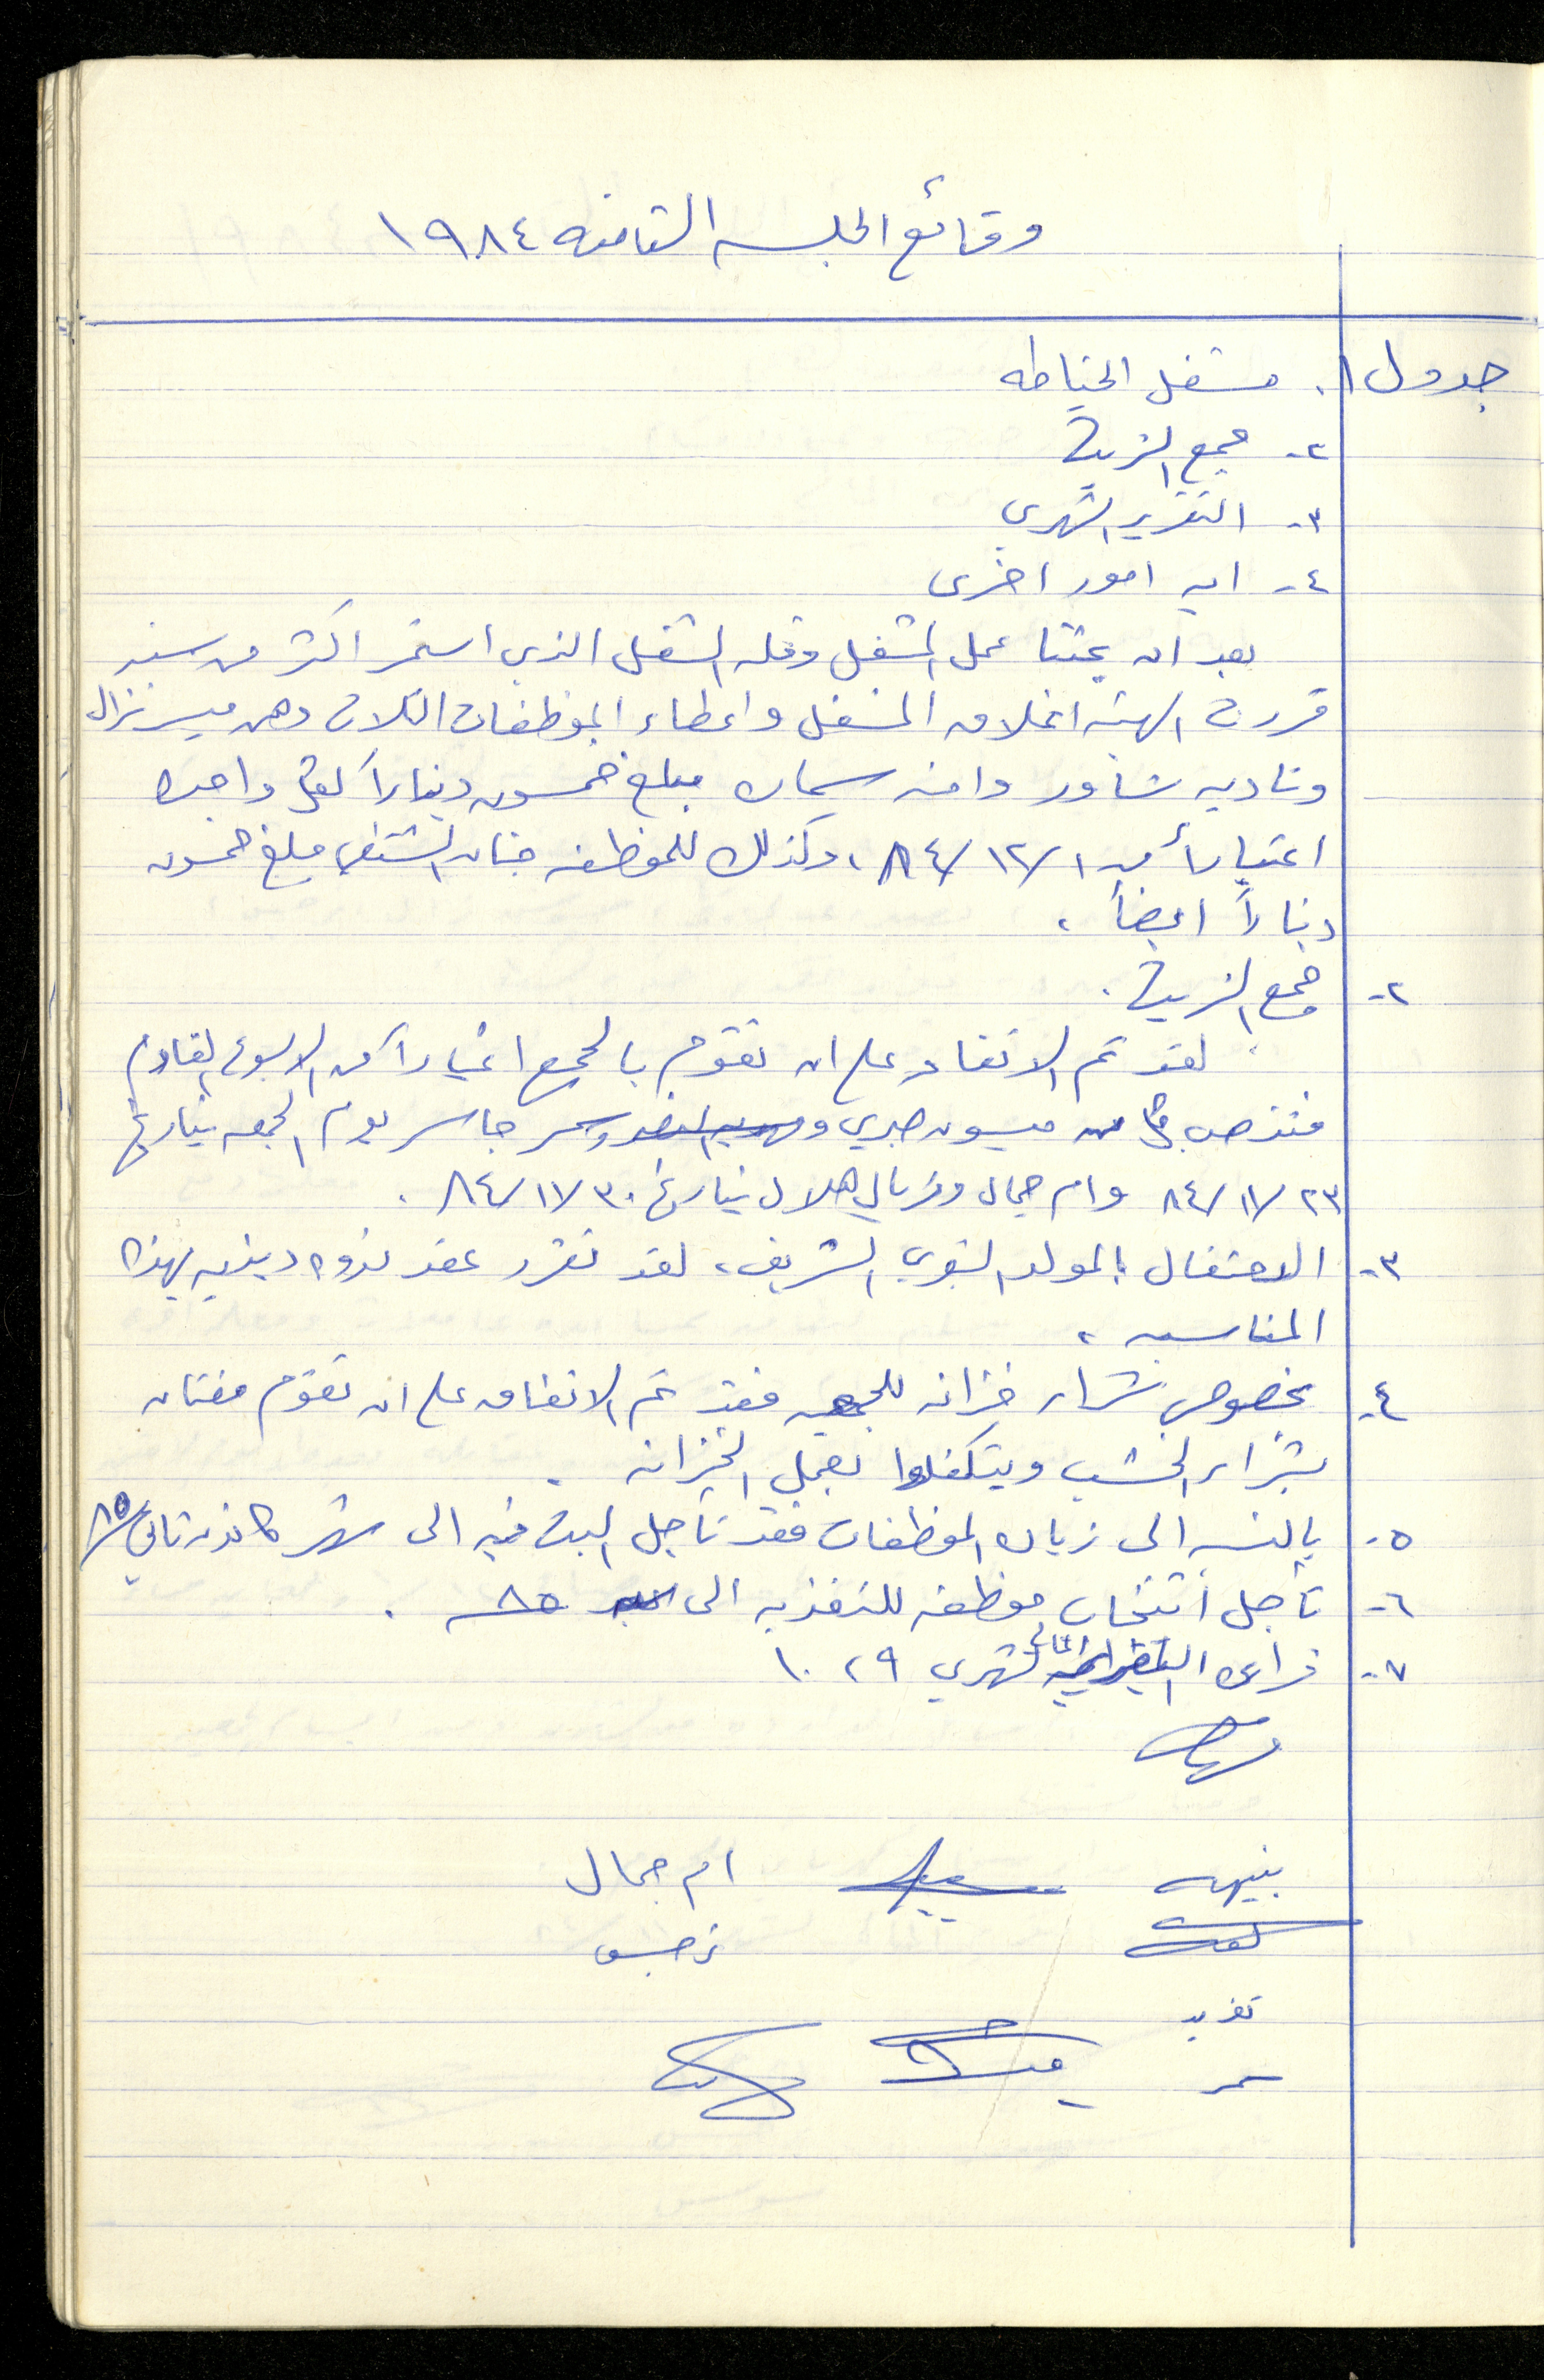 وقائع الجلسه الثامنه ١٩٨٤
جدول ١. مشغل الخياطه
٢- جمع الزيت
٣- التقرير الشهري
٤- ايه امور اخرى
بعد ان بحثنا عمل المشغل وقله الشغل الذي استمر اكثر من سنه
قررت الهيئه اغلاق المشغل واعطاء الموظفات الثلاث وهن ميسر نزال
وناديه شاور وامنه سمان مبلغ خمسون ديناراً لكل واحده
اعتباراً من ٨٤/١٢/١، وكذلك للموظفه حنان الشنطي مبلغ خمسون
ديناراً ايضاً.
٢- جمع الزيت.
لقد تم الاتفاق على ان نقوم بالجمع اعتباراً من الاسبوع القادم
فتذهب كل من ميسون صبري و سمر جاسر يوم الجمعه بتاريخ
٨٤/١١/٢٣ وام جمال وفريال هلال بتاريخ ٨٤/١١/٣٠.
٣- الاحتفال بالمولد النبوي الشريف، لقد تقرر عقد ندوه دينيه بهذه
المناسبه.
٤- بخصوص شراء خزانه للجمعيه فقد تم الاتفاق على ان تقوم
بشراء الخشب ويتكفلوا بعمل الخزانه.
٥- بالنسبه الى زياده الموظفات فقد تأجل البت فيه الى شهر كانون ثاني ٨٥
٦- تأجل انتخاب موظفه للتغذيه الى ٨٥.
٧- قراءه التقرير المالي لشهري ٩، ١٠
نهاد
نبيهه ام جمال
نرجس
تغريد
سمر